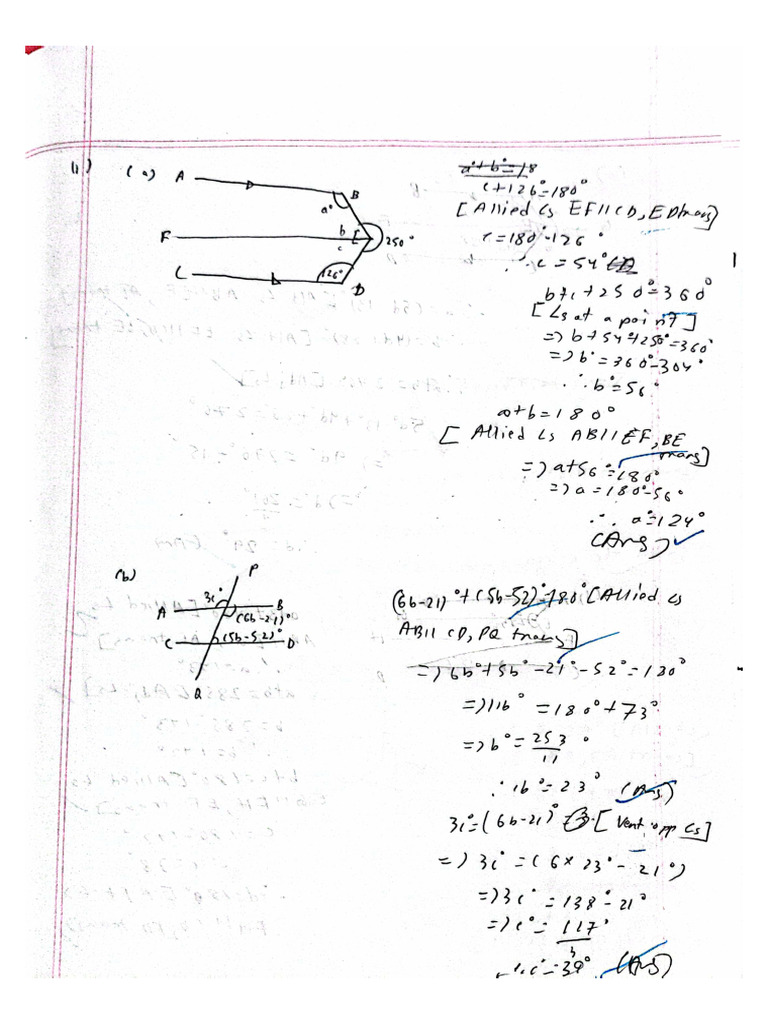 (1) (a) A B
a°
F b E 250°
c
C 126° D
a°+b°=18
c+126°=180°
[Allied ∠s EF∥CD, ED trans]
c=180°-126°
∴ c=54°
b+c+250°=360°
[∠s at a point]
=> b+54°+250°=360°
=> b°=360°-304°
∴ b°=56°
a+b=180°
[Allied ∠s AB∥EF, BE
trans]
=> a+56°=180°
=> a=180°-56°
∴ a°=124°
(Ans)
(b) P
3c°
A B
(6b-21)°
C (5b-52)° D
Q
(6b-21)°+(5b-52)°=180° [Allied ∠s
AB∥CD, PQ trans]
=> 6b°+5b°-21°-52°=180°
=> 11b°=180°+73°
=> b°=253°
11
∴ b°=23° (Ans)
3c°=(6b-21)° [Vert opp ∠s]
=> 3c°=(6×23°-21°)
=> 3c°=138°-21°
=> c°=117°
3
∴ c°=39° (Ans)